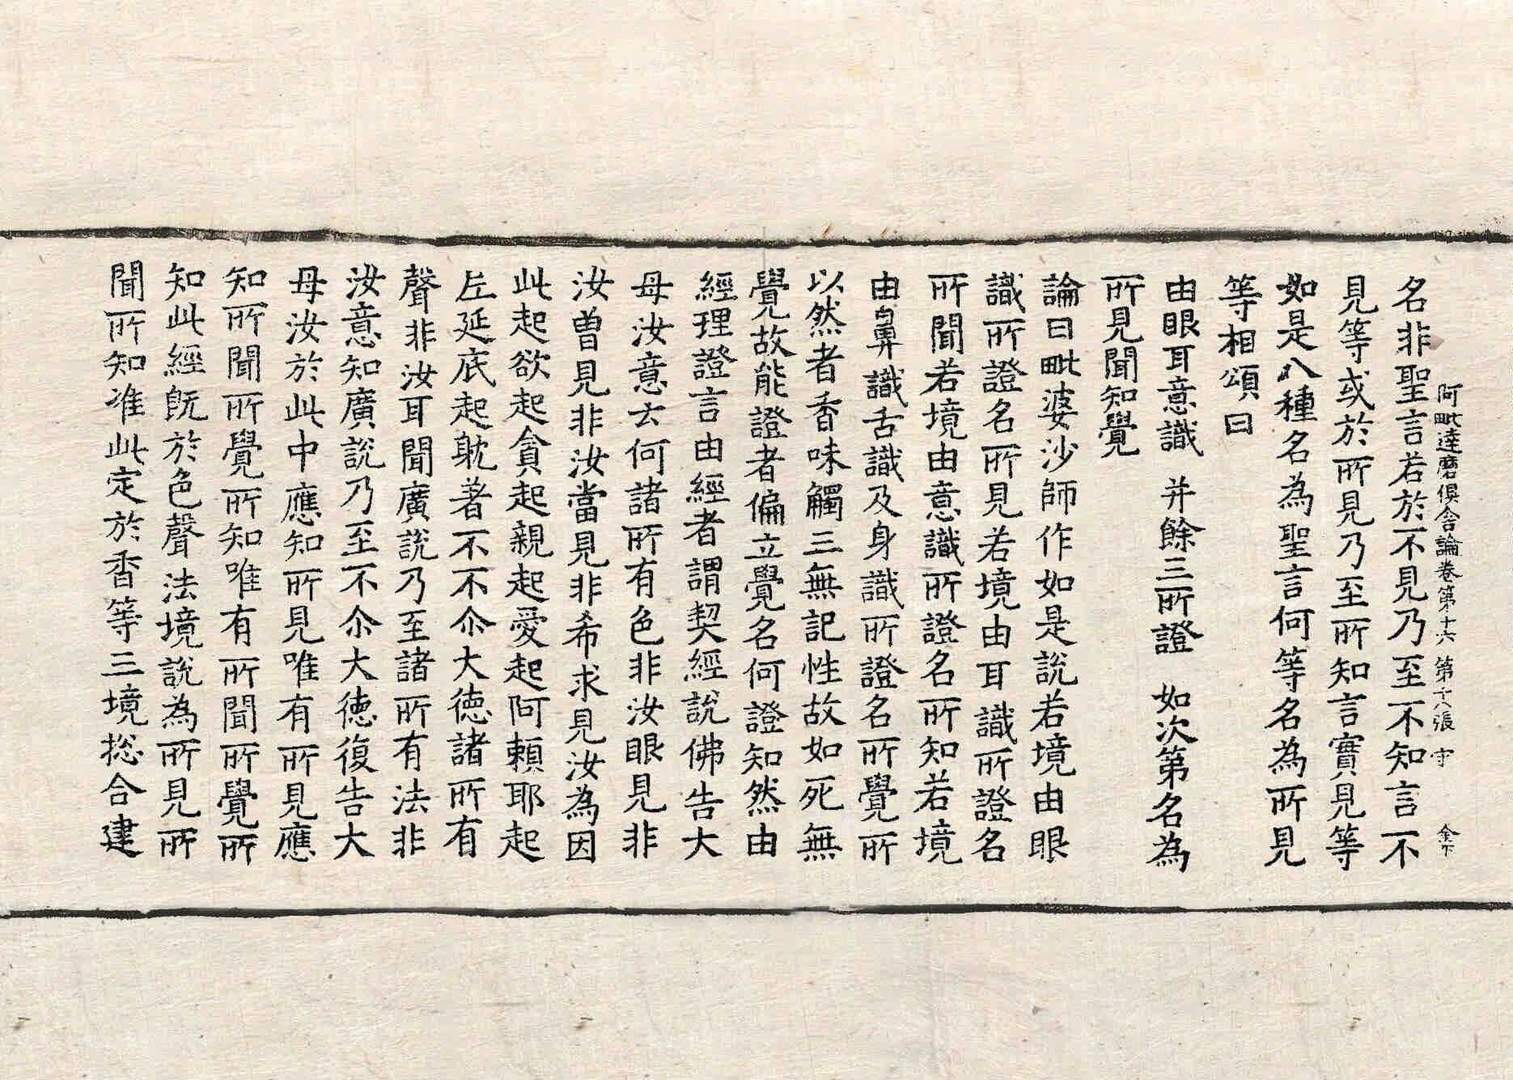 阿毗達磨俱舍論卷第十六 第十八張 守 金下
名非聖言若於不見乃至不知言不
見等或於所見乃至所知言實見等
如是八種名為聖言何等名為所見
等相頌曰
由眼耳意識 并餘三所證 如次第名為
所見聞知覺
論曰毗婆沙師作如是說若境由眼
識所證名所見若境由耳識所證名
所聞若境由意識所證名所知若境
由鼻識舌識及身識所證名所覺所
以然者香味觸三無記性故如死無
覺故能證者偏立覺名何證知然由
經理證言由經者謂契經說佛告大
母汝意云何諸所有色非汝眼見非
汝曾見非汝當見非希求見汝為因
此起欲起貪起親起愛起阿賴耶起
尼延底起躭著不不尒大德諸所有
聲非汝耳聞廣說乃至諸所有法非
汝意知廣說乃至不尒大德復告大
母汝於此中應知所見唯有所見應
知所聞所覺所知唯有所聞所覺所
知此經旣於色聲法境說為所見所
聞所知准此定於香等三境揔合建